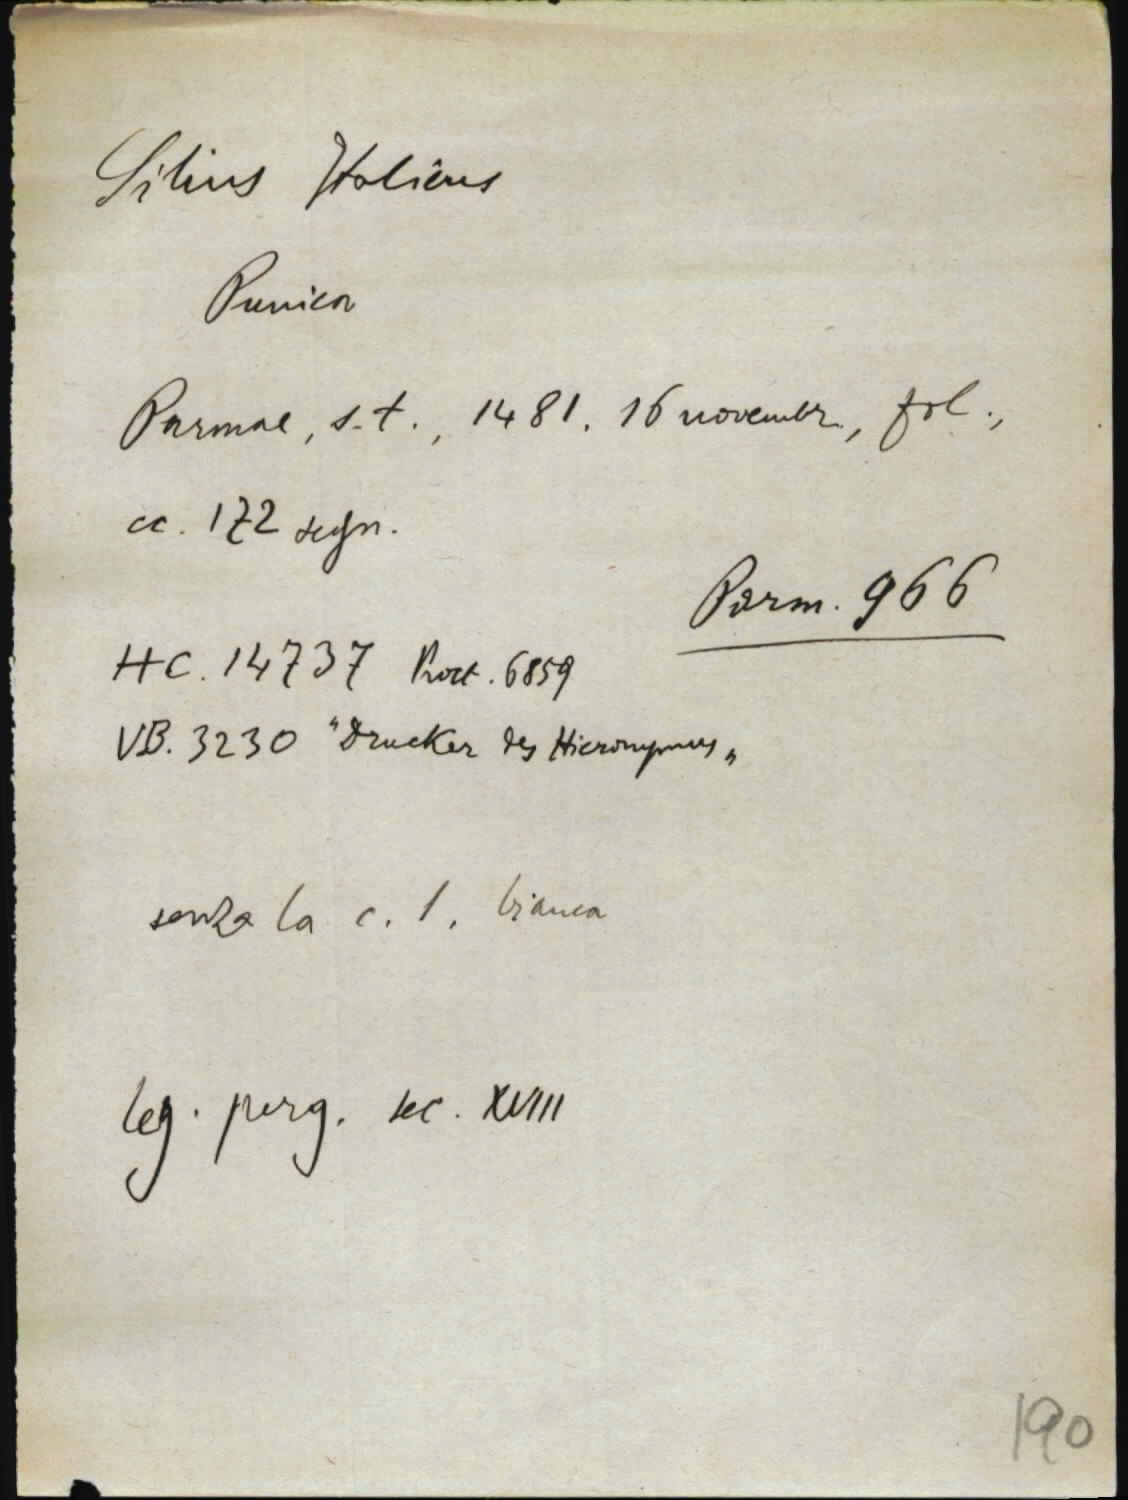 Silius Italicus
Punica
Parmae, s.t., 1481. 16 novembr., fol.,
cc. 172 segn.
Parm. 966
HC. 14737 Proct. 6859
VB. 3230 "Drucker des Hieronymus"
senza la c. 1. bianca
leg. perg. sec. XVIII
190